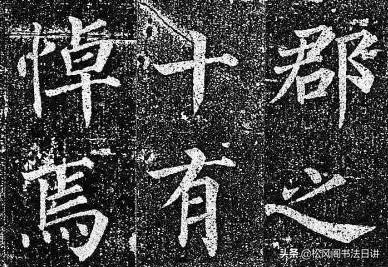 郡之
十有
悼焉
头条 @松风阁书法日讲